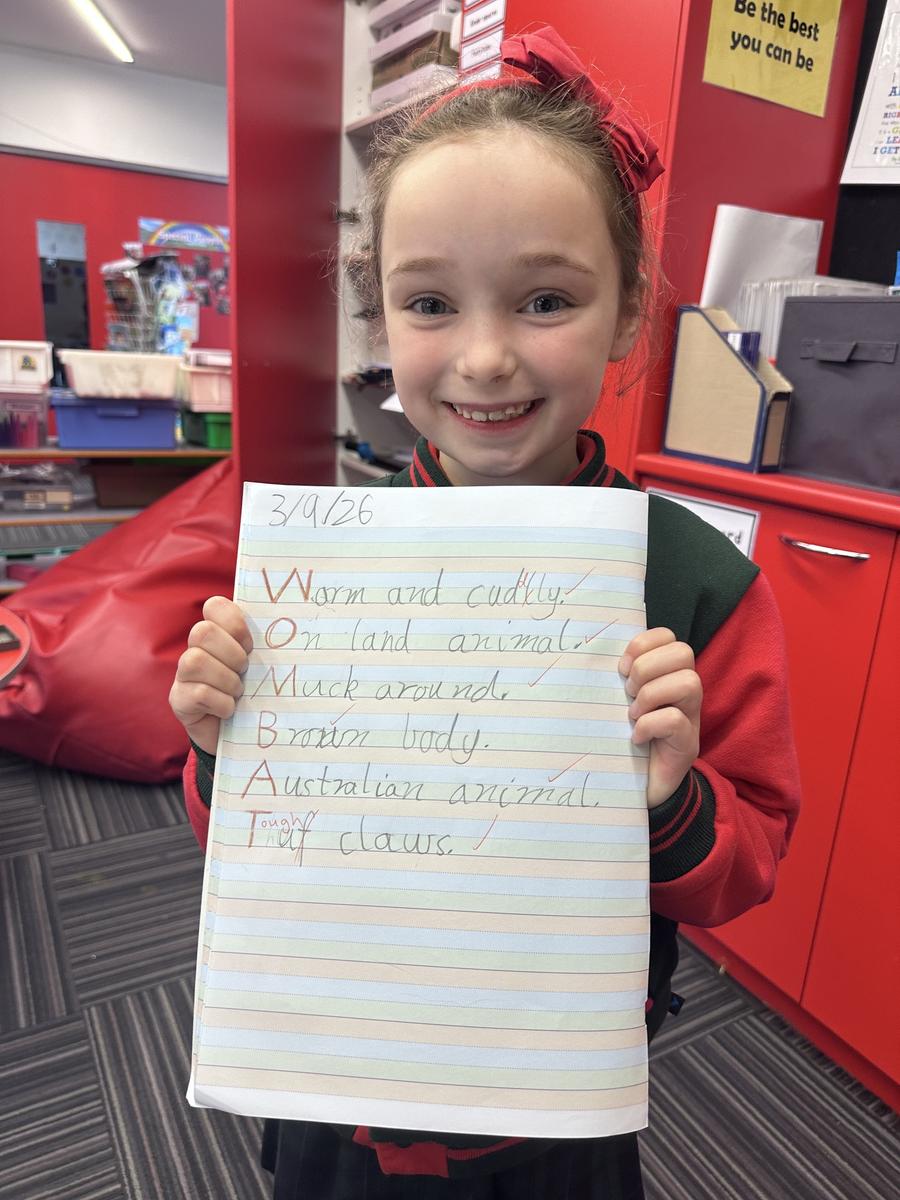 Be the best
you can be
3/9/26
Worm and cuddly.
On land animal.
Muck around.
Brown body.
Australian animal.
Tough
Thuf claws.